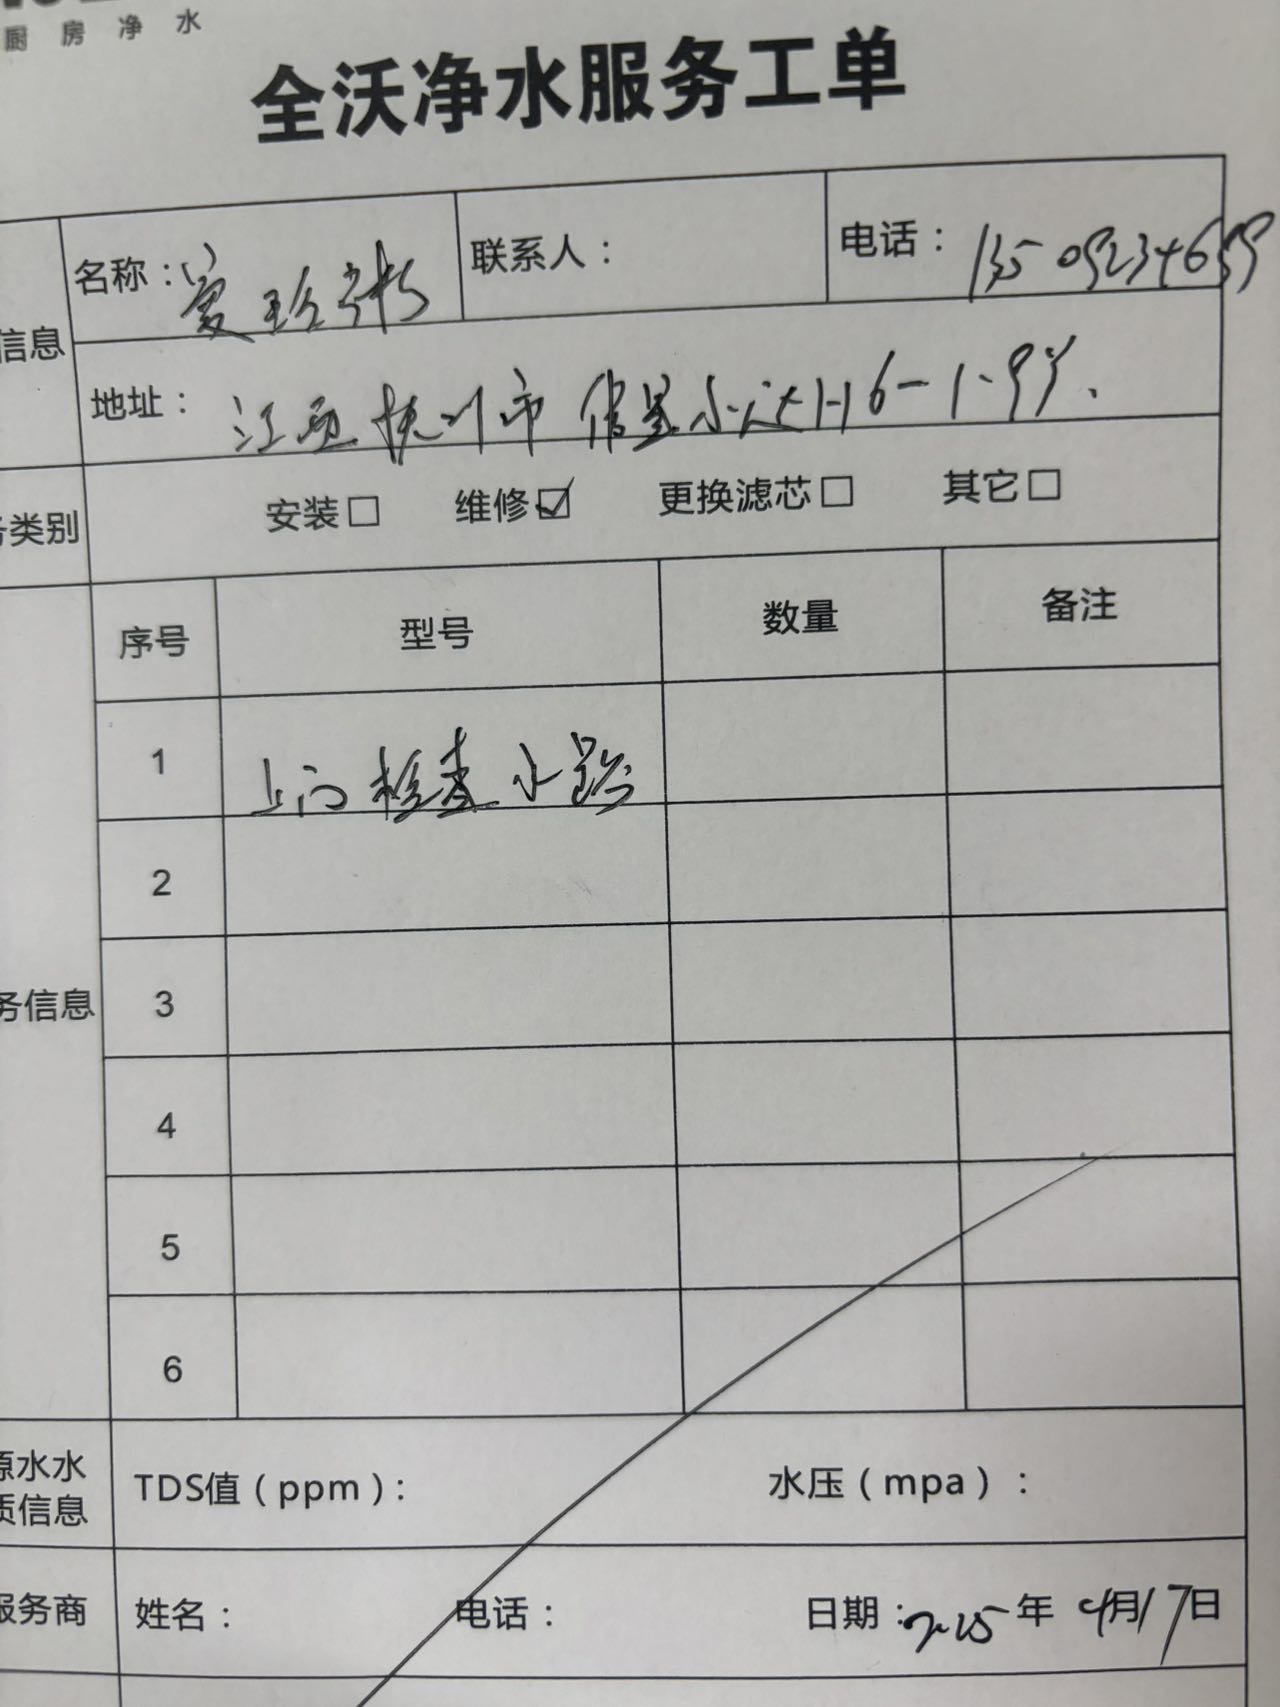 厨房净水
全沃净水服务工单
名称： 联系人： 电话：135 09234699
信息
地址：江西抚州市 信 小 16-1-99.
务类别 安装□ 维修☑ 更换滤芯□ 其它□
序号 型号 数量 备注
1 上门检查水路
2
务信息 3
4
5
6
源水水质信息 TDS值（ppm）： 水压（mpa）：
服务商 姓名： 电话： 日期：2025年4月17日